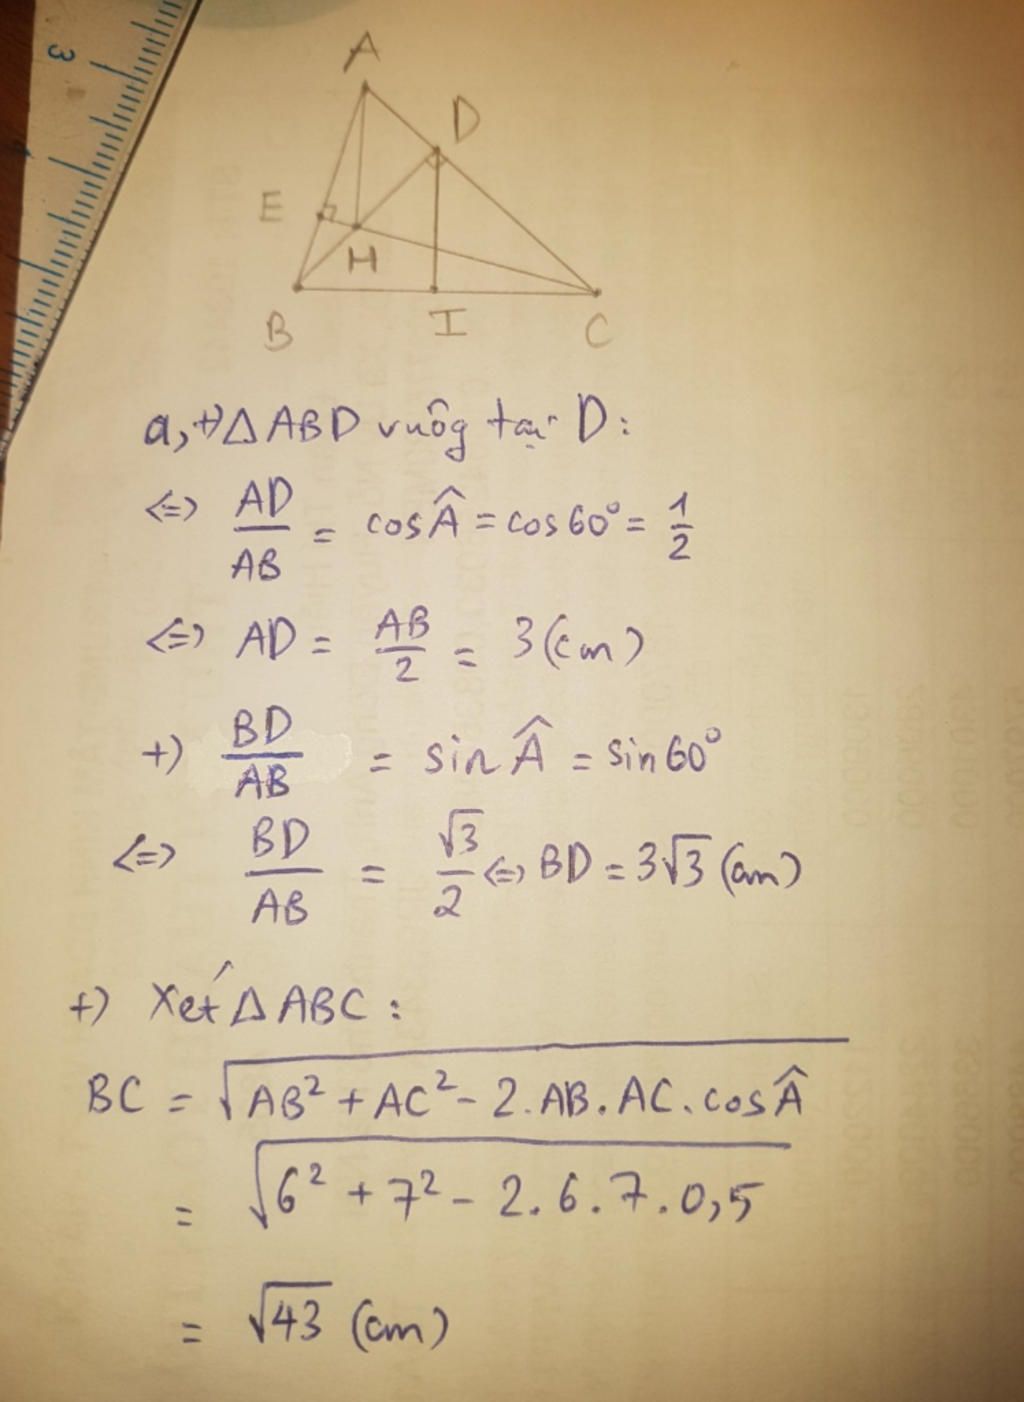 3
A
D
E
H
B
I
C
a, +) Δ ABD vuôg tại D:
<=> AD/AB = cos Â = cos 60° = 1/2
<=> AD = AB/2 = 3 (cm)
+) BD/AB = sin Â = sin 60°
<=> BD/AB = √3/2 <=> BD = 3√3 (cm)
+) Xét Δ ABC:
BC = √(AB² + AC² - 2. AB. AC. cos Â)
= √(6² + 7² - 2. 6. 7. 0,5)
= √43 (cm)